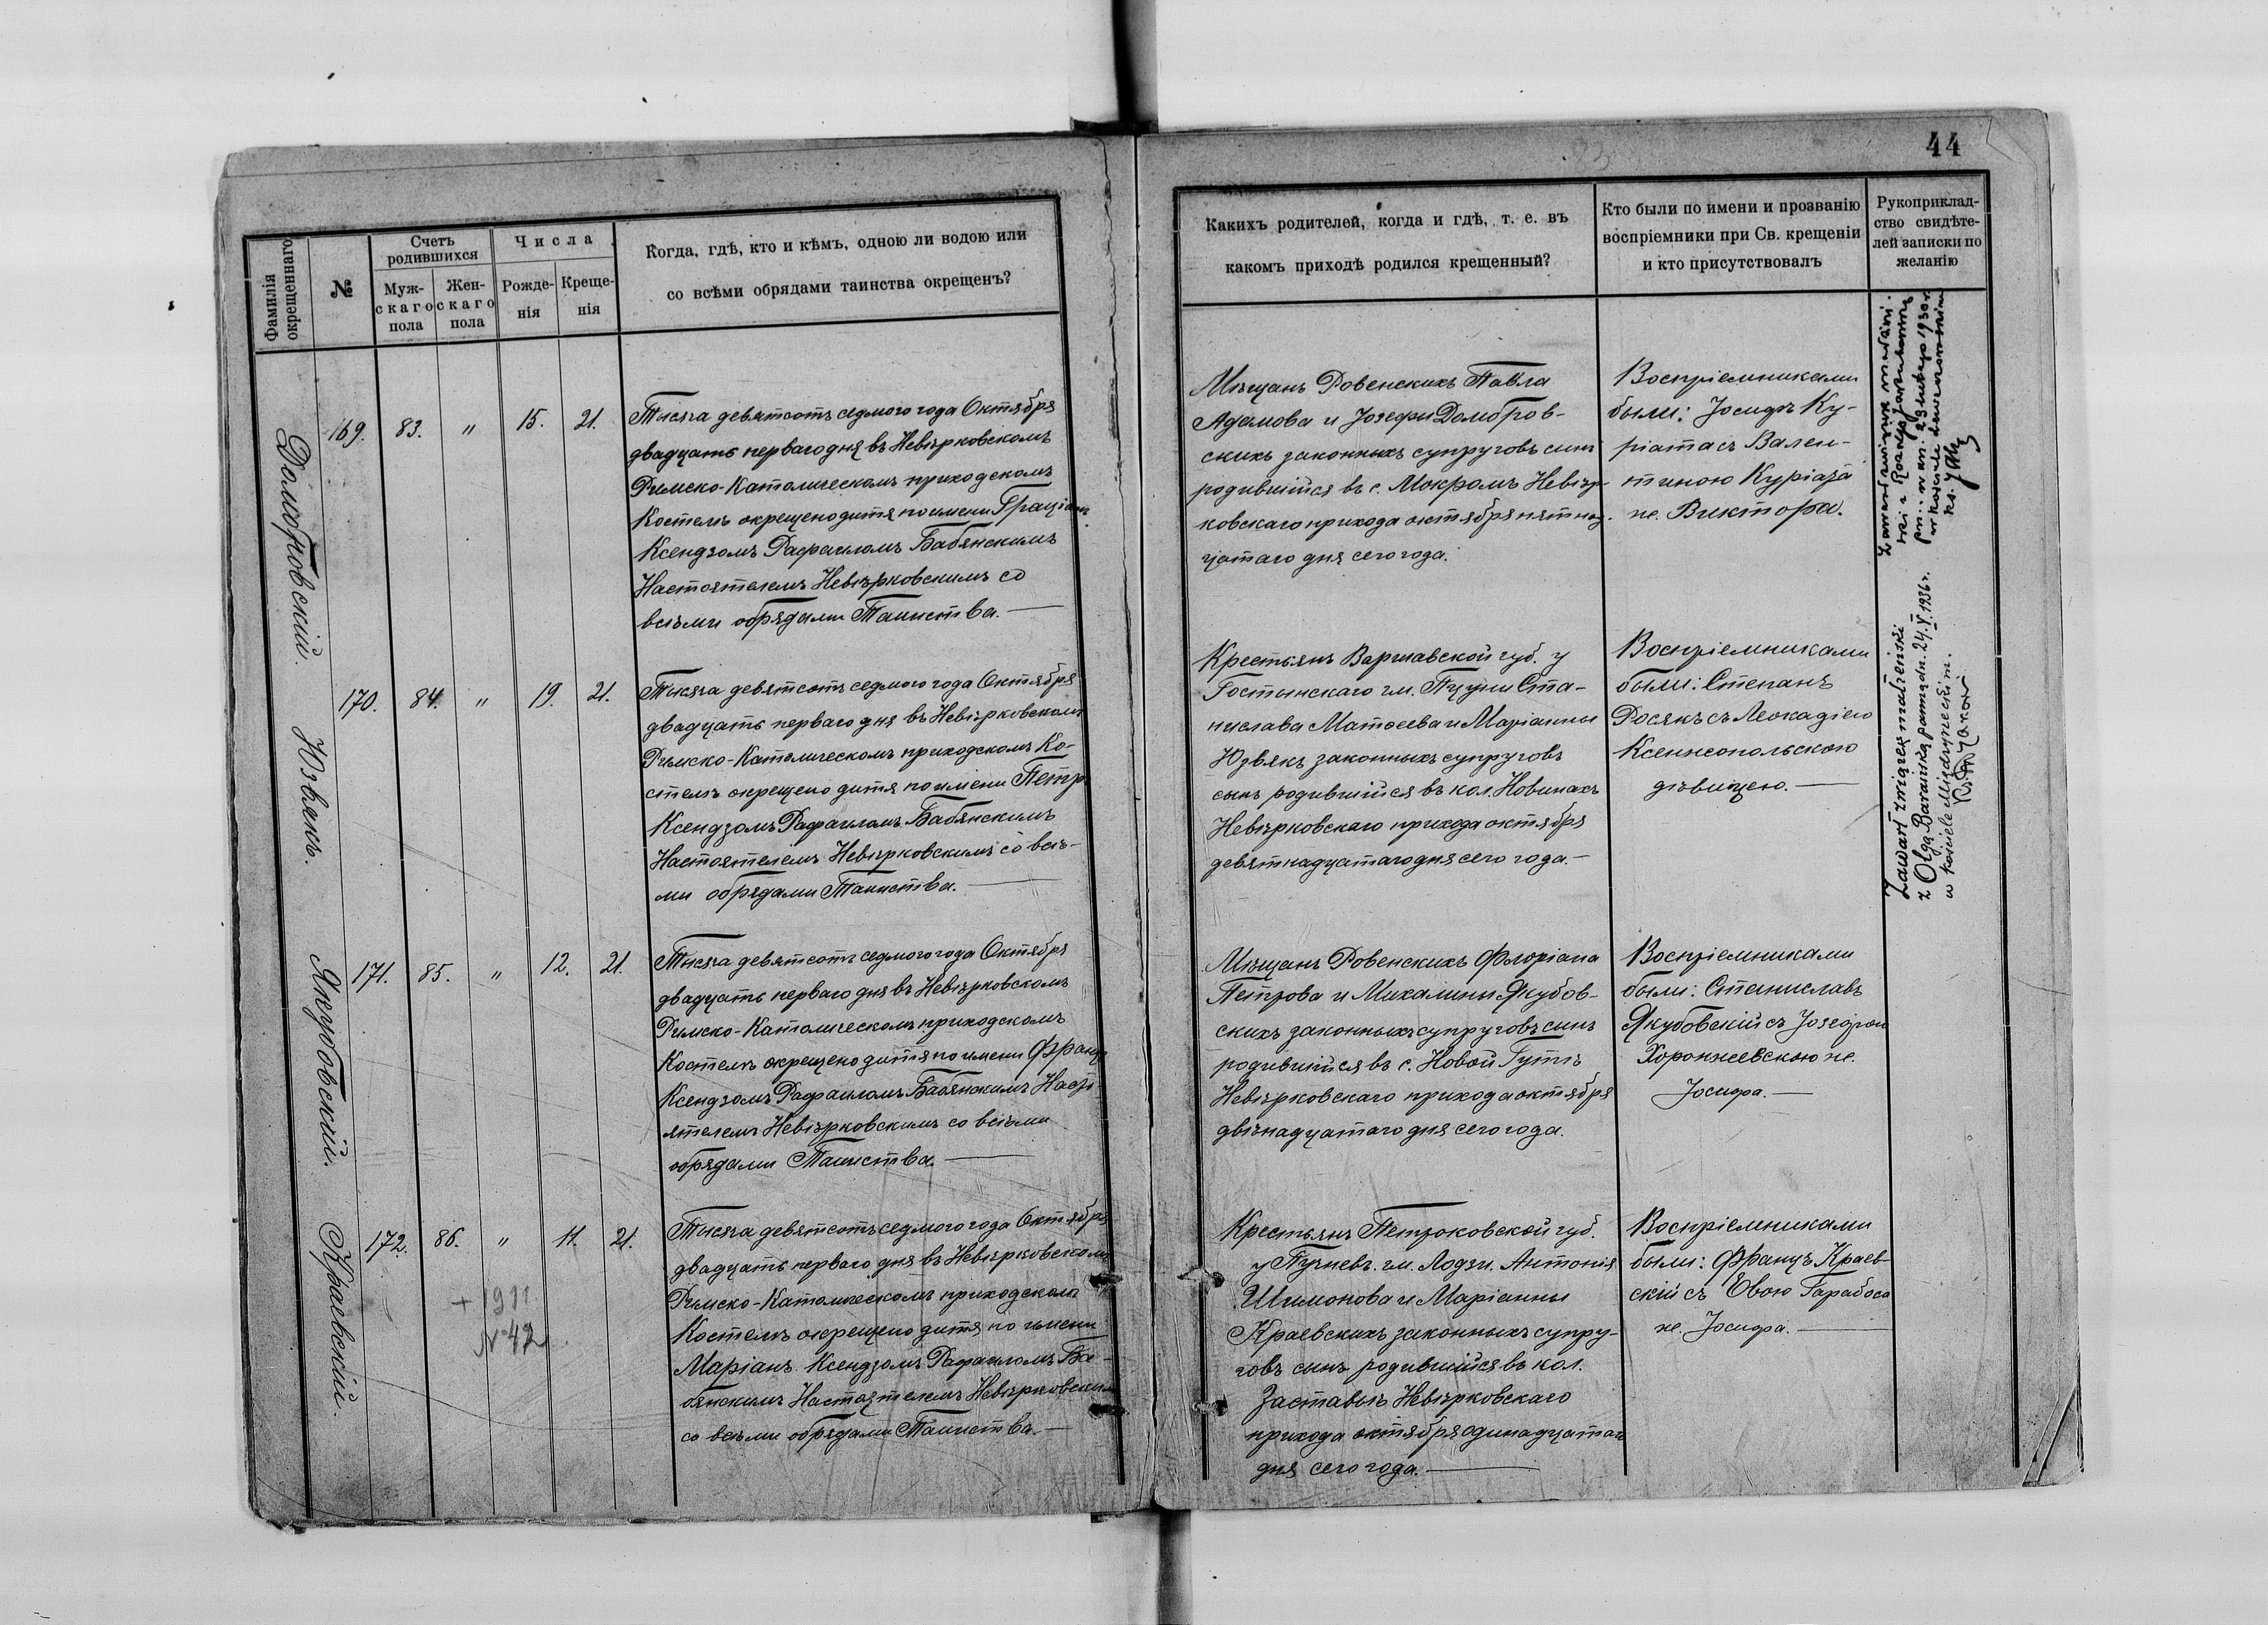 44
Фамилія окрещеннаго
№
Счетъ родившихся
Муж-
скаго
пола
Жен-
скаго
пола
Числа
Рожде-
нія
Креще-
нія
Когда, гдѣ, кто и кѣмъ, одною ли водою или
со всѣми обрядами таинства окрещенъ?
Какихъ родителей, когда и гдѣ, т. е. въ
какомъ приходѣ родился крещенный?
Кто были по имени и прозванію
воспріемники при Св. крещеніи
и кто присутствовалъ
Рукоприклад-
ство свидѣте-
лей записки по
желанію
Домбровскій.
169. 83. " 15. 21.
Тысяча девятсотъ седмого года Октября
двадцать перваго дня въ Невѣрковскомъ
Римско-Католическомъ приходскомъ
Костелѣ окрещено дитя по имени Граціанъ
Ксендзомъ Рафаиломъ Бабянскимъ
Настоятелемъ Невѣрковскимъ со
всѣми обрядами Таинства.
Мѣщанъ Ровенскихъ Павла
Адамова и Јозефы Домбров-
скихъ законныхъ супруговъ сынъ
родившійся въ с. Мокромъ Невѣр-
ковскаго прихода октября пятнад-
цатаго дня сего года.
Воспріемниками
были: Јосифъ Ку-
ріата съ Вален-
тиною Куріата
же. Виктора.
1930 r.
Юзвякъ.
170. 84. " 19. 21.
Тысяча девятсотъ седмого года Октября
двадцать перваго дня въ Невѣрковскомъ
Римско-Католическомъ приходскомъ Ко-
стелѣ окрещено дитя по имени Петръ
Ксендзомъ Рафаиломъ Бабянскимъ
Настоятелемъ Невѣрковскимъ со всѣ-
ми обрядами Таинства.
Крестьянъ Варшавской губ. у
Гостынскаго гм. Ста-
нислава Матоеева и Маріанны
Юзвякъ законныхъ супруговъ
сынъ родившійся въ кол. Новинахъ
Невѣрковскаго прихода октября
девятнадцатаго дня сего года.
Воспріемниками
были: Степанъ
Росякъ съ Леокадіею
Ксенжопольскою
дѣвицею.
Zawarł związek małżeński
z Olgą Barańską panną dn. 24.V 1936 r.
w kościele
Якубовскій.
171. 85. " 12. 21.
Тысяча девятсотъ седмого года Октября
двадцать перваго дня въ Невѣрковскомъ
Римско-Католическомъ приходскомъ
Костелѣ окрещено дитя по имени Францъ
Ксендзомъ Рафаиломъ Бабянскимъ Насто-
ятелемъ Невѣрковскимъ со всѣми
обрядами Таинства.
Мѣщанъ Ровенскихъ Флоріана
Петрова и Михалины Якубов-
скихъ законныхъ супруговъ сынъ
родившійся въ с. Новой Гутѣ
Невѣрковскаго прихода октября
двѣнадцатаго дня сего года.
Воспріемниками
были: Станиславъ
Якубовскій съ Јозефою
Хоронжевскою же.
Јосифа.
Краевскій.
172. 86. " 11. 21.
+ 1911
№ 42
Тысяча девятсотъ седмого года Октября
двадцать перваго дня въ Невѣрковскомъ
Римско-Католическомъ приходскомъ
Костелѣ окрещено дитя по имени
Маріанъ Ксендзомъ Рафаиломъ Ба-
бянскимъ Настоятелемъ Невѣрковскимъ
со всѣми обрядами Таинства.
Крестьянъ Петроковской губ.
у гм. Лодзи. Антонія
Шимонова и Маріанны
Краевскихъ законныхъ супру-
говъ сынъ родившійся въ кол.
Заставьѣ Невѣрковскаго
прихода октября одинадцатаго
дня сего года.
Воспріемниками
были: Францъ Краев-
скій съ Евою Гарабоса
же. Јосифа.